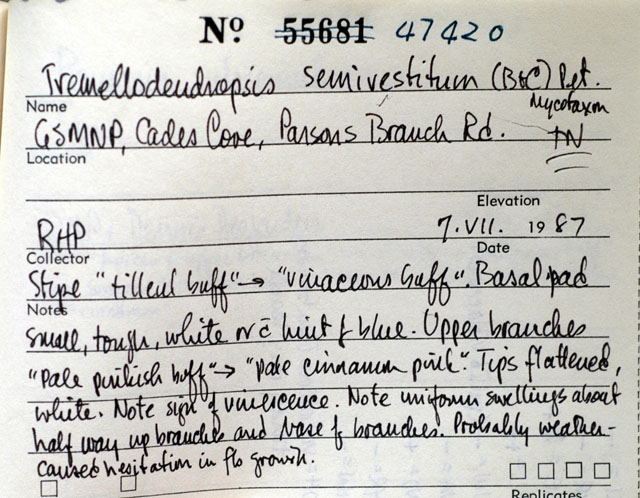 Nº 55681 47420
Tremellodendropsis semivestitum (B&C) Pet.
Name Mycotaxon
GSMNP, Cades Cove, Parsons Branch Rd. TN
Location
Elevation
RHP 7.VII. 1987
Collector Date
Stipe "tilleul buff" → "vinaceous buff". Basal pad
Notes
small, tough, white w c̄ hint of blue. Upper branches
"pale pinkish buff" → "pale cinnamon pink". Tips flattened,
white. Note sign of virescence. Note uniform swellings about
half way up branches and base of branches. Probably weather-
caused hesitation in fb growth.
Replicates